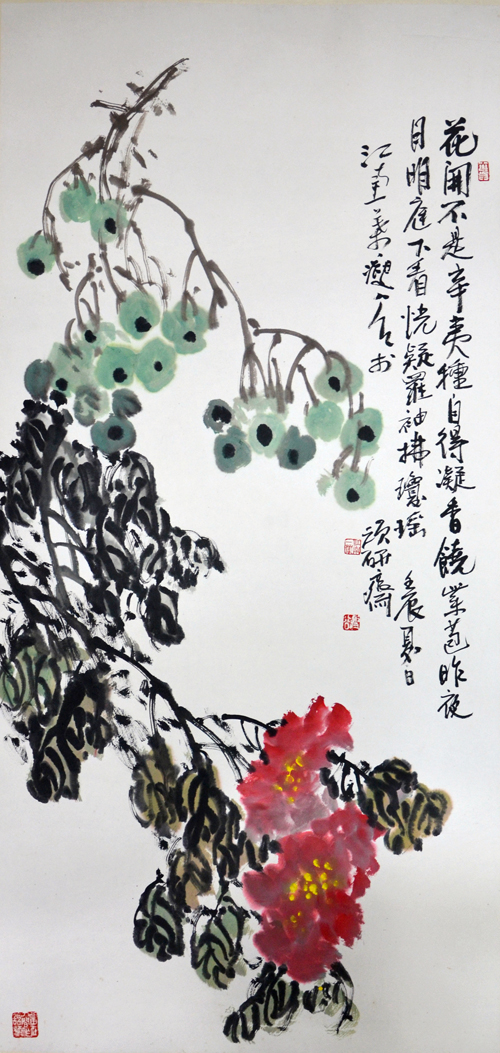 花開不是辛夷種自得凝香饒紫苞昨夜
月明庭下看恍疑羅袖拂瓊瑤 壬辰夏日
江南葉瘦 研齋